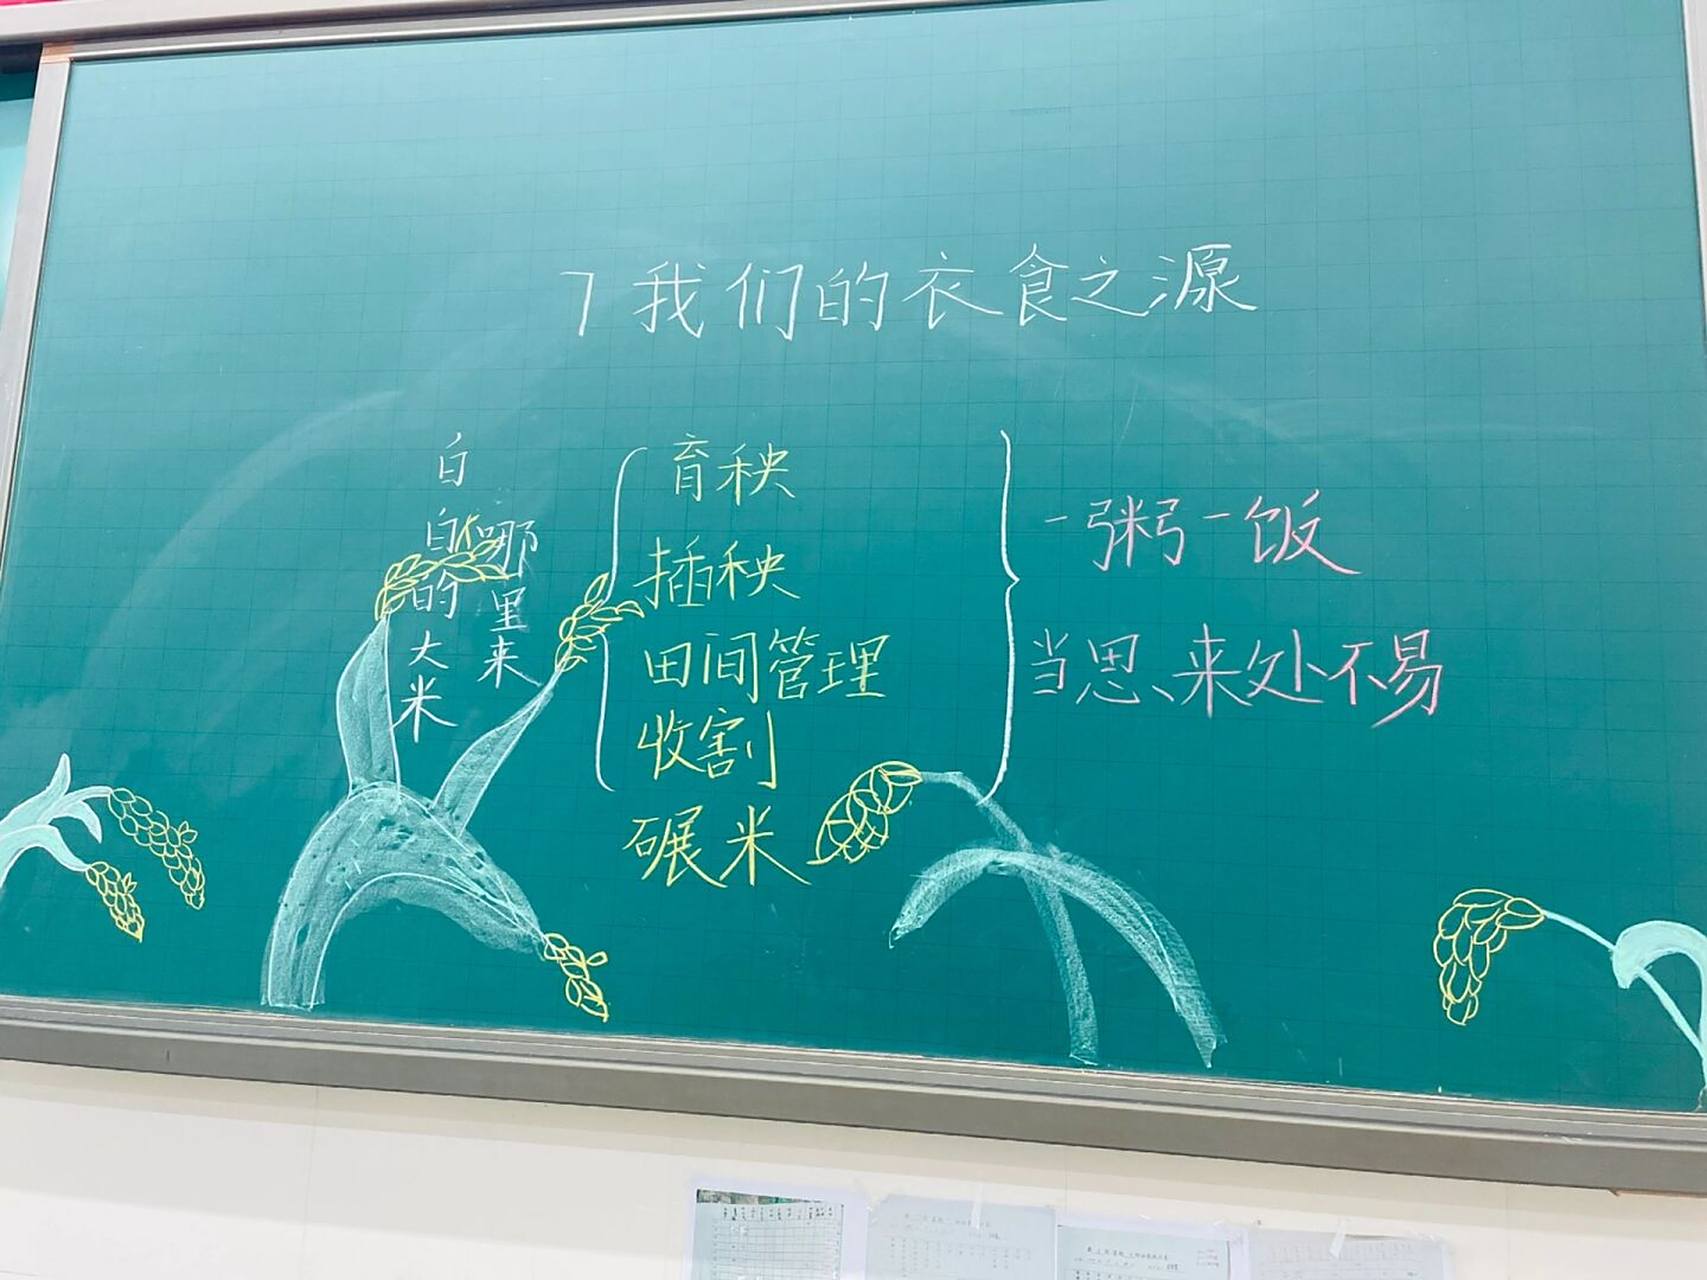 7 我们的衣食之源
白白的大米
哪里来
育秧
插秧
田间管理
收割
碾米
一粥一饭
当思来处不易